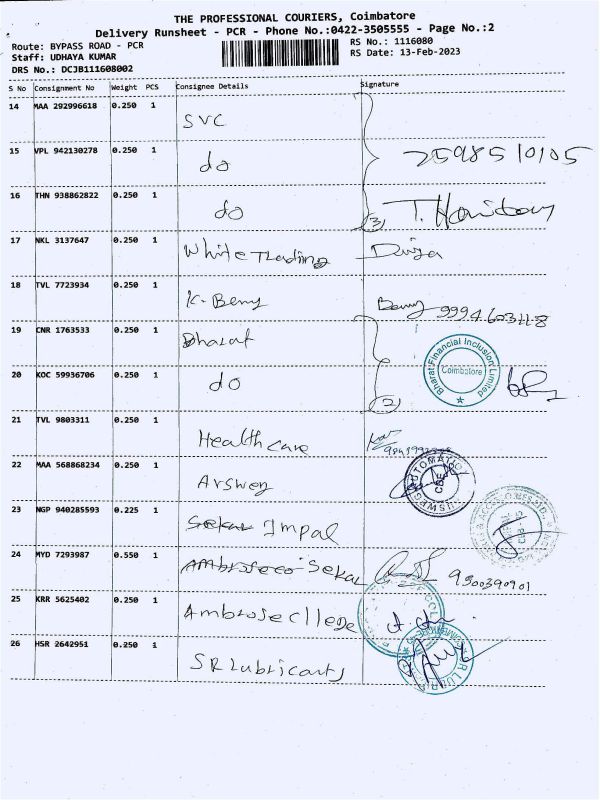 THE PROFESSIONAL COURIERS, Coimbatore
Delivery Runsheet - PCR - Phone No.:0422-3505555 - Page No.:2
Route: BYPASS ROAD - PCR
RS No.: 1116080
Staff: UDHAYA KUMAR
RS Date: 13-Feb-2023
DRS No.: DCJB111608002
S No Consignment No Weight PCS Consignee Details Signature
14 MAA 292996618 0.250 1
SVC
15 VPL 942130278 0.250 1
do 2598510105
16 THN 938862822 0.250 1
do (3) T.
17 NKL 3137647 0.250 1
White Trading Divya
18 TVL 7723934 0.250 1
K. Beny Benny
19 CNR 1763533 0.250 1
Bharat
Bharat Financial Inclusion Limited
Coimbatore
20 KOC 59936706 0.250 1
do (2)
21 TVL 9803311 0.250 1
Health care
22 MAA 568868234 0.250 1
Arswey
23 NGP 940285593 0.225 1
Sekar Impal
24 MYD 7293987 0.550 1
Sekar
25 KRR 5625402 0.250 1
Ambrose cllege
26 HSR 2642951 0.250 1
SR Lubricants